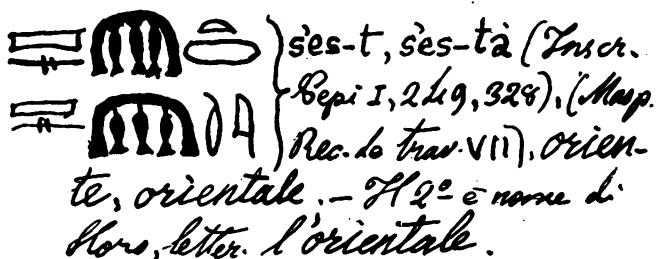 s'es-t, s'es-tà (Inscr.
Pepi I, 249, 328), (Masp.
Rec. de trav. VII), orien-
te, orientale. – Il 2º è nome di
Horo, letter. l'orientale.